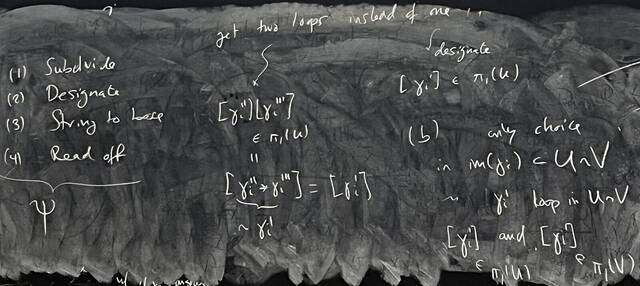 (1) Subdivide
(2) Designate
(3) String to base
(4) Read off
Ψ
get two loops instead of one
[γᵢ''][γᵢ''']
∈ π₁(U)
=
[γᵢ'' * γᵢ'''] = [γᵢ']
~ γᵢ'
designate
[γᵢ'] ∈ π₁(U)
(b) only choice
in im(γᵢ) ⊂ U∩V
~ γᵢ' loop in U∩V
[γᵢ'] and [γᵢ']
∈ π₁(U) ∈ π₁(V)